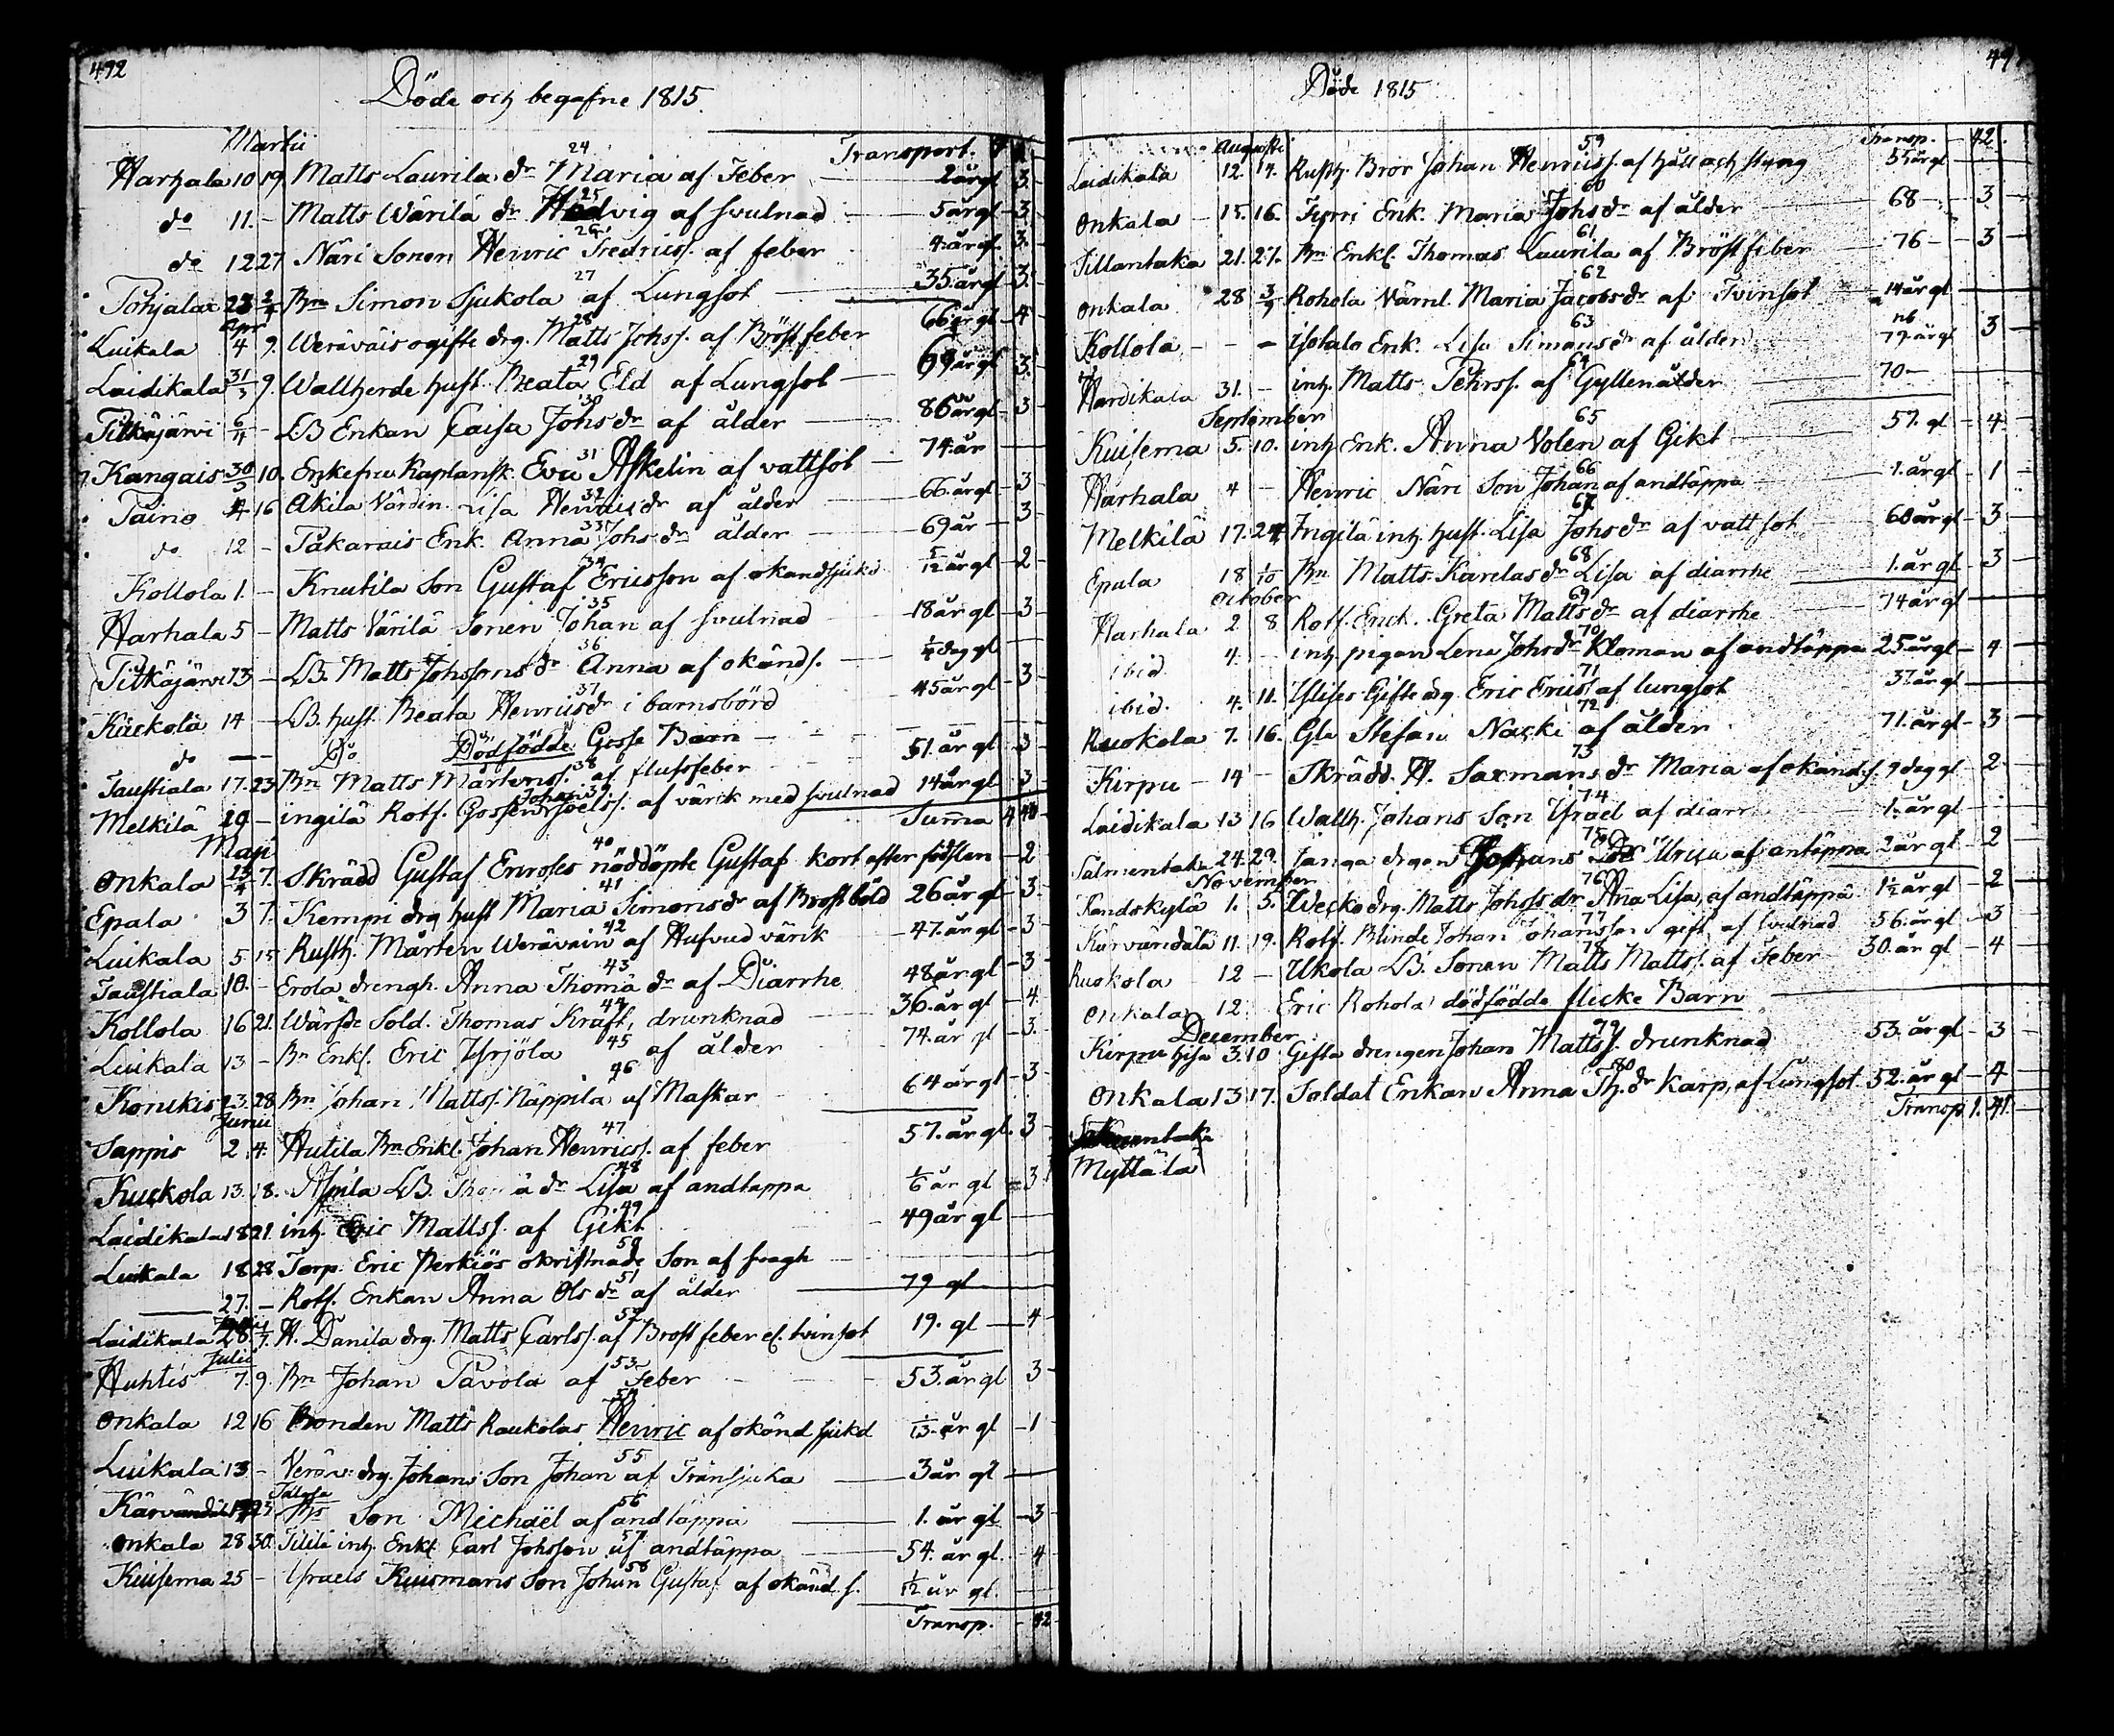 492
Döde och begrafne 1815.
Martii Transport.
24
Harhala 10 19 Matts Laurila dr Maria af Feber 2 år gl 3
25
do 11 - Matts Wärilä dr Hedvig af svulnad 5 år gl 3
26
do 12 27 Näri Sonen Henric Fredricss. af feber 4 år gl 3
27
Pohjala 23 2/4 Bn Simon Sjukola af Lungsot 35 år gl 3
Apr
28
Luikala 4 9. Weräväis ogifte drg. Matts Johss. af Bröstfeber 66 år gl 4
29
Laidikala 31/3 9. Wallherde hust. Beata Eld af Lungsot 69 år gl 3
30
Pitkäjärvi 6/4 - LB Enkan Caisa Johsdr af ålder 86 år gl 3
31
Kangais 30/3 10. Enkefru Kaplansk. Eva Askelin af vattsot 74 år
32
Taino 4 16 Akila Värdin. Lisa Henricsdr af ålder 66 år gl 3
33
do 12 - Pakarais Enk. Anna Johsdr ålder 69 år 3
34
Kollola 1. - Knutila Son Gustaf Ericsson af okand sjukd 5/12 år gl 2
35
Harhala 5 - Matts Värilä Sonen Johan af svulnad 18 år gl 3
36
Pitkäjärvi 13 - LB. Matts Johssons dr Anna af okänds. 1/4 dag gl
37
Käckölä 14 - LB. hust. Beata Henricsdr i barnsbörd 45 år gl 3
do - - Do Dödfödde Gosse Barn
38
Taustiala 17. 23 Bn Matts Mårtenss. af flussfeber 51. år gl 3
Johan 39
Melkilä 19 - ingilä Rots. Gossen Joelss. af värik med svulnad 14 år gl 3
Maji Summa
40
Onkala 23/4 7. Skrädd Gustaf Enroses nöddöpte Gustaf kort efter födslen 2
41
Epala 3 7. Kempi drg hust Maria Simonsdr af Brostböld 26 år gl 3
42
Luikala 5 15 Rusth. Mårten Weräväin af Hufvud värik 47. år gl 3
43
Taustiala 10. - Erola drengh. Anna Thomä dr af Diarrhe 48 år gl 3
44
Kollola 16 21. Wärfde Sold. Thomas Kraft, drunknad 36. år gl 4
45
Luikala 13 - Bn Enkl. Eric Isrjöla af ålder 74. år gl 3
46
Konikis 23. 28 Bn Johan Mattss. Näppilä af Maskar 64 år gl 3
Junii
47
Sappis 2 4. Hutila Bn Enkl. Johan Henricss. af feber 57. år gl. 3
48
Kuckola 13. 18. Aspila LB. Thomä dr Lisa af andtappa 1/6 år gl 3
49
Laidikala 18 21. inh. Eric Mattss. af Gikt 49 år gl
50
Luikala 18 28 Torp. Eric Perkiös okristnade Son af
51
27. - Rots. Enkan Anna Olsdr af ålder 79 gl
52
Laidikala 28 1/7. H. Danila drg. Matts Carlss. af Brost feber el. tvinsot 19. gl 4
Julii
53
Huhtis 7. 9. Bn Johan Pavola af Feber 53. år gl 3
54
Onkala 12 16 Bonden Matts Raukolas Henric af okänd sjukd 1/13 år gl 1
55
Luikala 13 - Veräv: drg. Johans Son Johan af Tränsjuka 3 år gl
56
Kärvändälä 23. Son Michaël af andtäppa 1. år gl 3
57
Onkala 28 30. Tililä inh. Enkl Carl Johsson af andtäppa 54. år gl. 4
58
Kuisema 25 - Israels Kuismans Son Johan Gustaf af okänd s. 1/12 år gl.
Transp. 42
Döde 1815
Augusti Transp. 42
59
Laidikala 12. 17. Rusth. Bror Johan Henricss. af håll och styng 55 år gl
60
Onkala 15. 16. Fyrri Enk. Maria Johsdr af ålder 68 - 3
61
Tillantaka 21. 27. Bn Enkl. Thomas Laurila af Bröstfeber 76 - 3
62
Onkala 28 3/9 Rohola Värnl. Maria Jacobsdr af Tvinsot 14 år gl
63
Kollola - - Isotalo Enk. Lisa Simonsdr af ålder 77 år gl 3
64
Hardikala 31. - inh. Matts Pehrss. af Gyllenålder 70 -
September
65
Kuisema 5. 10. inh Enk. Anna Volen af Gikt 57. gl 4
66
Harhala 4 - Henric Näri Son Johan af andtäppa 1. år gl 1
67
Melkilä 17. 24. Ingilä inh. hust. Lisa Johsdr af vattsot 60 år gl 3
68
Epala 18 1/10 Bn Matts Karelas dr Lisa af diarrhe 1. år gl 3
October
69
Harhala 2 8 Rots. Enck. Greta Mattsdr af diarrhe 74 år gl
70
ibid. 4. - inh. pigan Lena Johsdr Kloman af andtäppa 25 år gl 4
71
ibid. 4. 11. Gifte drg. Eric Ericss. af lungsot 37 år gl
72
Ruokola 7. 16. Gla Stefan Nacki af ålder 71. år gl 3
73
Kirpu 14 - Skrädd. H. Saxmans dr Maria af okänd s. 9 dag gl 2
74
Laidikala 13 16 Wallh. Johans Son Israel af diarr 1. år gl
75
Salmentaka 24. 29. Janga drgen Johans Ulrica af antäppa 2 år gl 2
November
76
Kandskylä 1. 5. Wecko drg. Matts Johss dr Anna Lisa, af andtäppa 1 1/2 år gl 2
77
Kärvändälä 11. 19. Rots. Blinde Johan Johansson gift af svulnad 56. år gl 3
78
Ruokola 12 - Ukola LB. Sonen Matts Mattss. af Feber 30. år gl 4
Onkala 12. Eric Rohola dödfödde flicke Barn
December
79
Kirpu hisa 3. 10 Gifta drengen Johan Mattss. drunknad 53. år gl 3
80
Onkala 13 17. Soldat Enkan Anna Th.dr Karp, af Lungsot. 52. år gl 4
Transp. 1. 41.
Myttälä